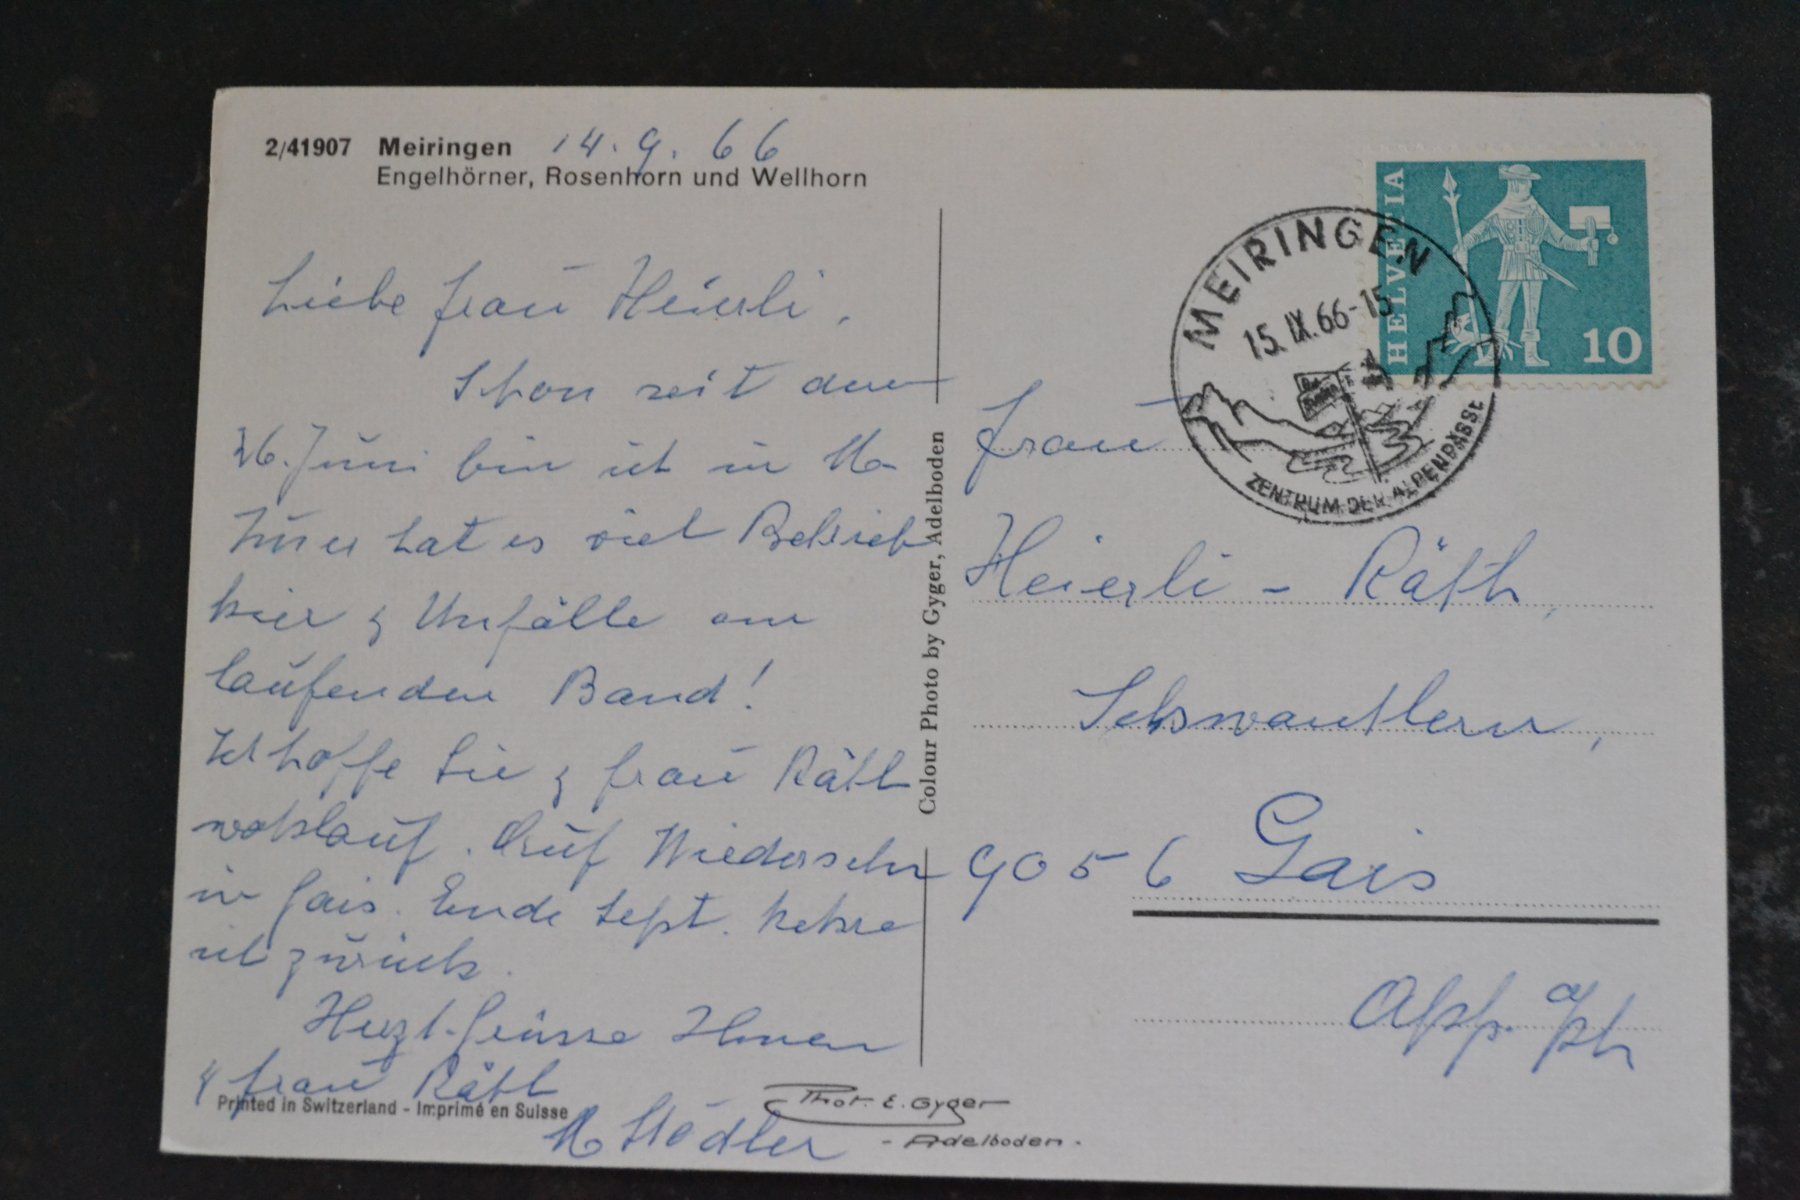 2/41907 Meiringen 14.9.66
Engelhörner, Rosenhorn und Wellhorn
Liebe Frau Heierli,
Schon seit dem
26. Juni bin ich in M.
Immer hat es viel Betrieb
hier & Unfälle am
laufenden Band!
Ich hoffe Sie & Frau Räth
wohlauf. Auf Wiedersehn
in Gais. Ende Sept. kehre
ich zurück.
Herzl. Grüsse Ihnen
& Frau Räth
Printed in Switzerland - Imprimé en Suisse
M Städler
Colour Photo by Gyger, Adelboden
Phot. E. Gyger
- Adelboden -
HELVETIA
10
MEIRINGEN
15.IX.66-15
ZENTRUM DER ALPENPÄSSE
Frau
Heierli - Räth,
Schwantlern,
9056 Gais
App. a/Rh